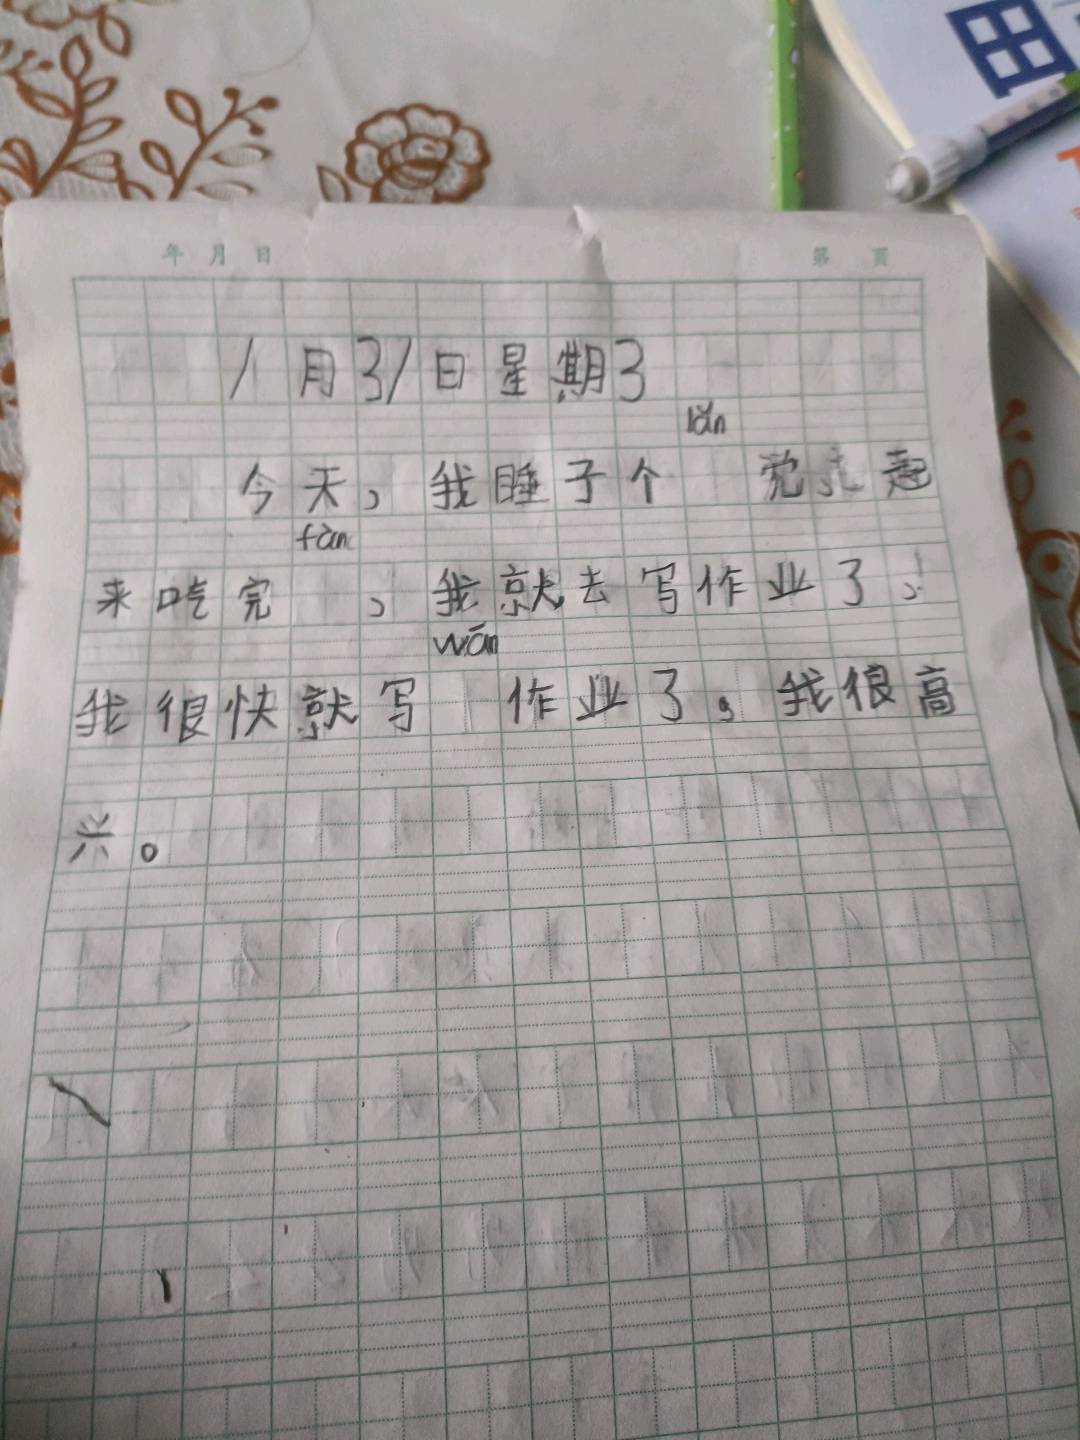 田
年 月 日 第 页
1月31日星期3
lǎn
今天，我睡子个 觉起
fàn
来吃完 ，我就去写作业了，
wán
我很快就写 作业了，我很高
兴。